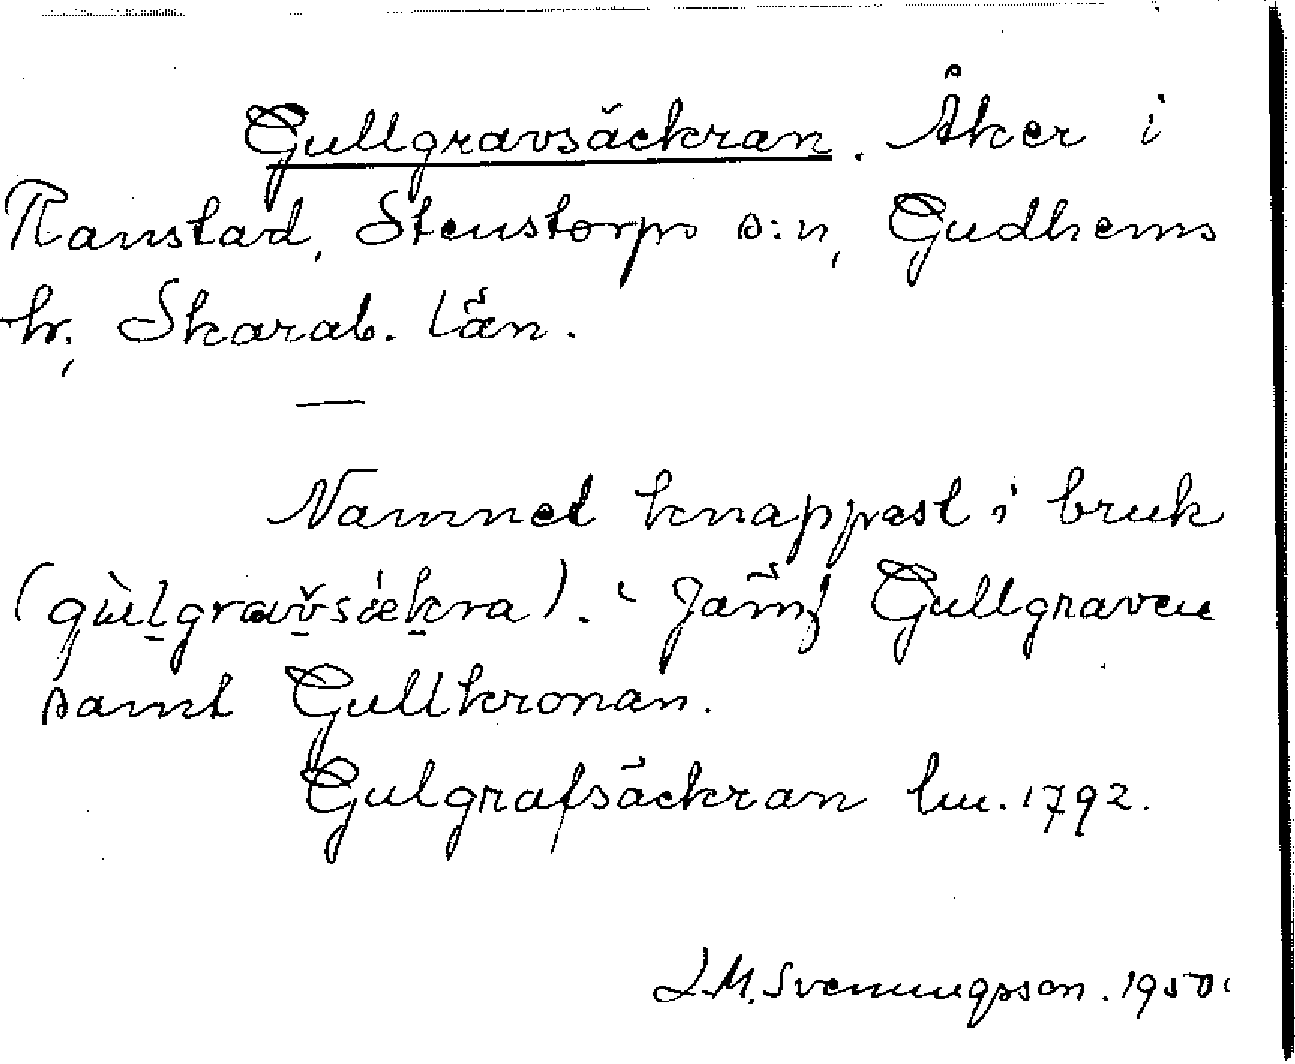 Gullgravsäckran. Åker i
Ranstad, Stenstorps s:n, Gudhems
hr., Skarab. län.
—
Namnet knappast i bruk
(gùlgravsækra). Jämf Gullgraven
samt Gullkronan.
Gulgrafsäckran lm. 1792.
J.M. Svenungsson. 1950.